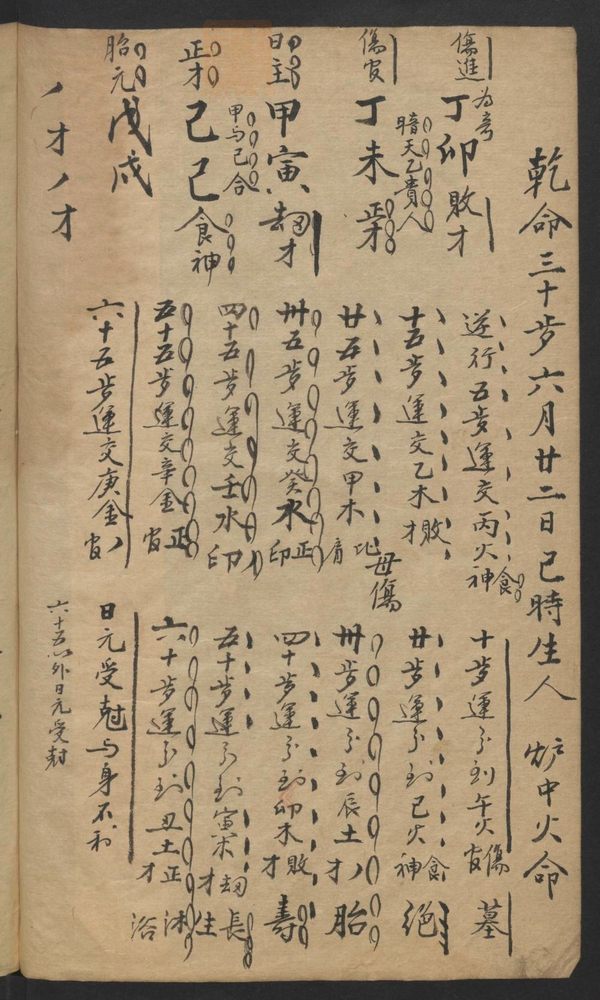 乾命三十步六月廿二日巳時生人 炉中火命
傷進 丁卯敗才
为
暗天乙貴人
傷官 丁未正才
日主 甲寅刼才
甲与己合
正才 己巳食神
胎元 戊戌
才 才
逆行五步運交丙火食神
十五步運交乙木敗才
廿五步運交甲木比肩
毋傷
卅五步運交癸水正印
四十五步運交壬水印
五十五步運交辛金正官
六十五步運交庚金官
十步運行到午火傷官 墓
廿步運行到巳火食神 絕
卅步運行到辰土才 胎
四十步運行到卯木敗才 壽
五十步運行到寅木刼才 長生
六十步運行到丑土正才 沐浴
日元受尅与身不利
六十五以外日元受尅